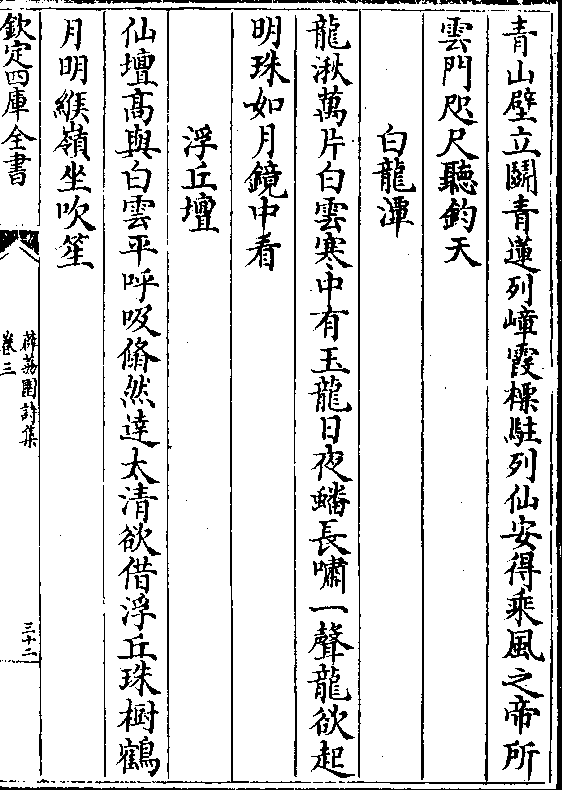 青山壁立鬭青蓮列嶂霞標駐列仙安得乘風之帝所
雲門咫尺聽鈞天
白龍潭
龍湫萬片白雲寒中有玉龍日夜蟠長嘯一聲龍欲起
明珠如月鏡中看
浮丘壇
仙壇髙與白雲平呼吸翛然達太清欲借浮丘珠樹鶴
月明緱嶺坐吹笙
欽定四庫全書
薜荔園詩集
卷三
三十二